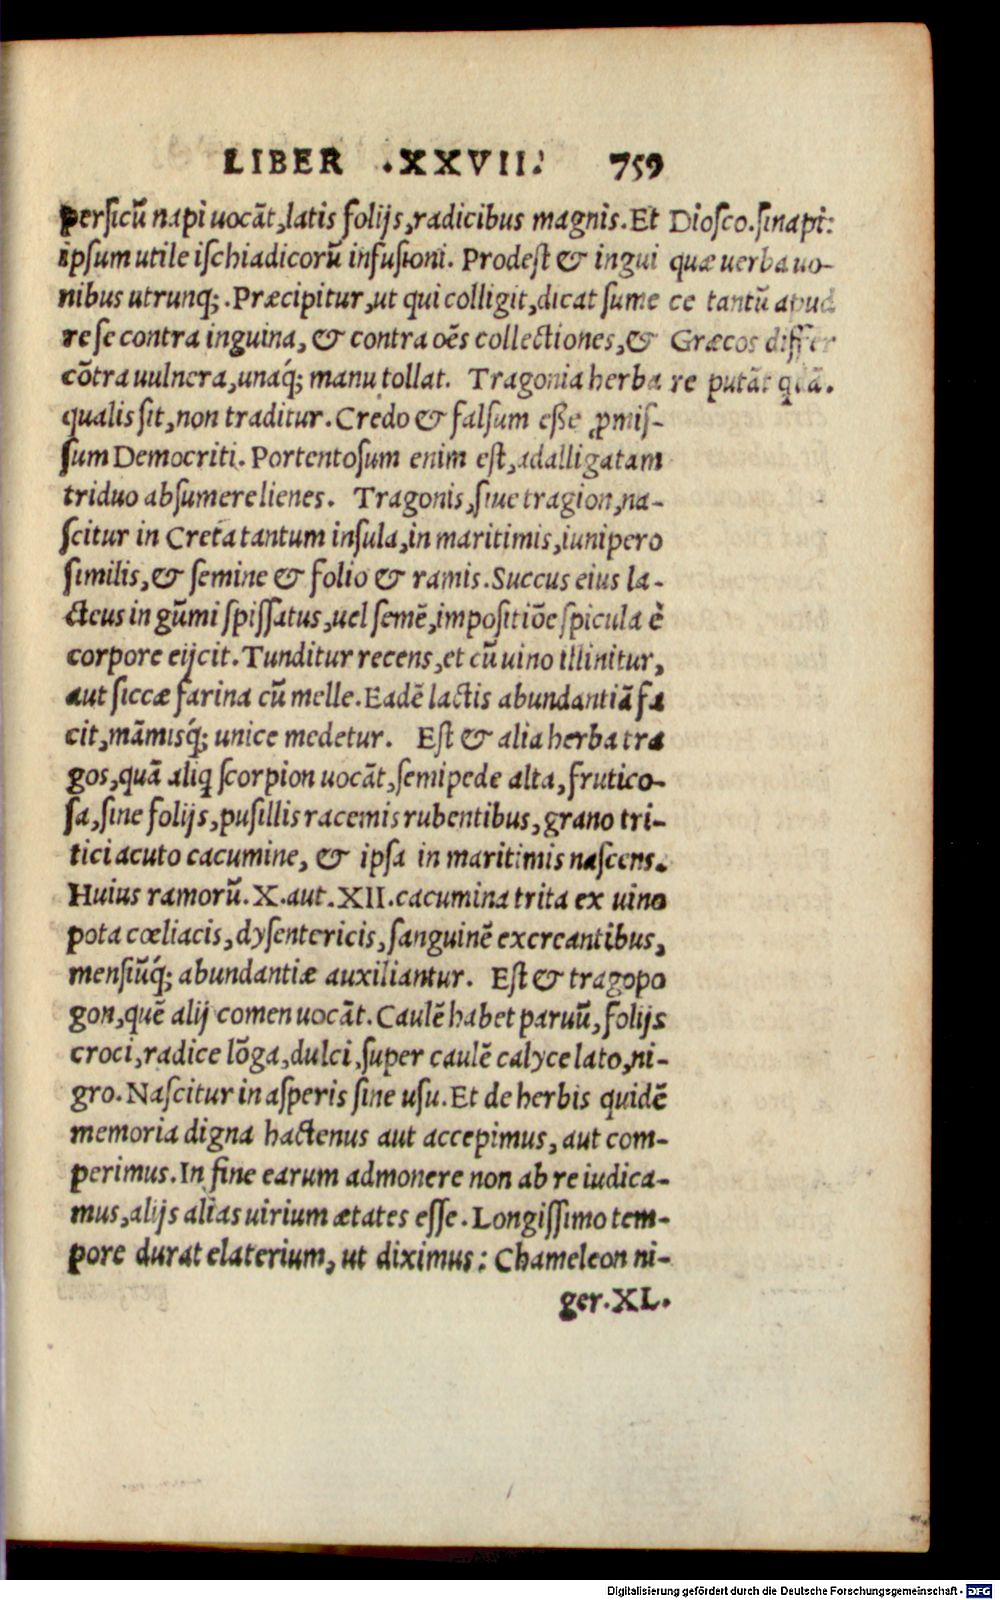 LIBER .XXVII. 759
persicũ napi uocãt, latis folijs, radicibus magnis. Et
ipsum utile ischiadicorũ infusioni. Prodest & ingui
nibus utrunq;. Præcipitur, ut qui colligit, dicat sume
re se contra inguina, & contra oẽs collectiones, &
cõtra uulnera, unaq́; manu tollat. Tragonia herba
qualis sit, non traditur. Credo & falsum esse ꝓmis-
sum Democriti. Portentosum enim est, adalligatam
triduo absumere lienes. Tragonis, siue tragion, na-
scitur in Creta tantum insula, in maritimis, iunipero
similis, & semine & folio & ramis. Succus eius la-
cteus in gũmi spissatus, uel semẽ, impositiõe spicula è
corpore eijcit. Tunditur recens, et cũ uino illinitur,
aut siccæ farina cũ melle. Eadẽ lactis abundantiã fa
cit, mãmisq́; unice medetur. Est & alia herba tra
gos, quã aliq scorpion uocãt, semipede alta, frutico-
sa, sine folijs, pusillis racemis rubentibus, grano tri-
tici acuto cacumine, & ipsa in maritimis nascens.
Huius ramorũ. X. aut. XII. cacumina trita ex uino
pota cœliacis, dysentericis, sanguinẽ excreantibus,
mensiũq́; abundantiæ auxiliantur. Est & tragopo
gon, quẽ alij comen uocãt. Caulẽ habet paruũ, folijs
croci, radice lõga, dulci, super caulẽ calyce lato, ni-
gro. Nascitur in asperis sine usu. Et de herbis quidẽ
memoria digna hactenus aut accepimus, aut com-
perimus. In fine earum admonere non ab re iudica-
mus, alijs alias uirium ætates esse. Longissimo tem-
pore durat elaterium, ut diximus: Chameleon ni-
ger. XL.
Diosco. sinapi:
quæ uerba uo-
ce tantũ apud
Græcos differ
re putãt quã.
Digitalisierung gefördert durch die Deutsche Forschungsgemeinschaft - DFG